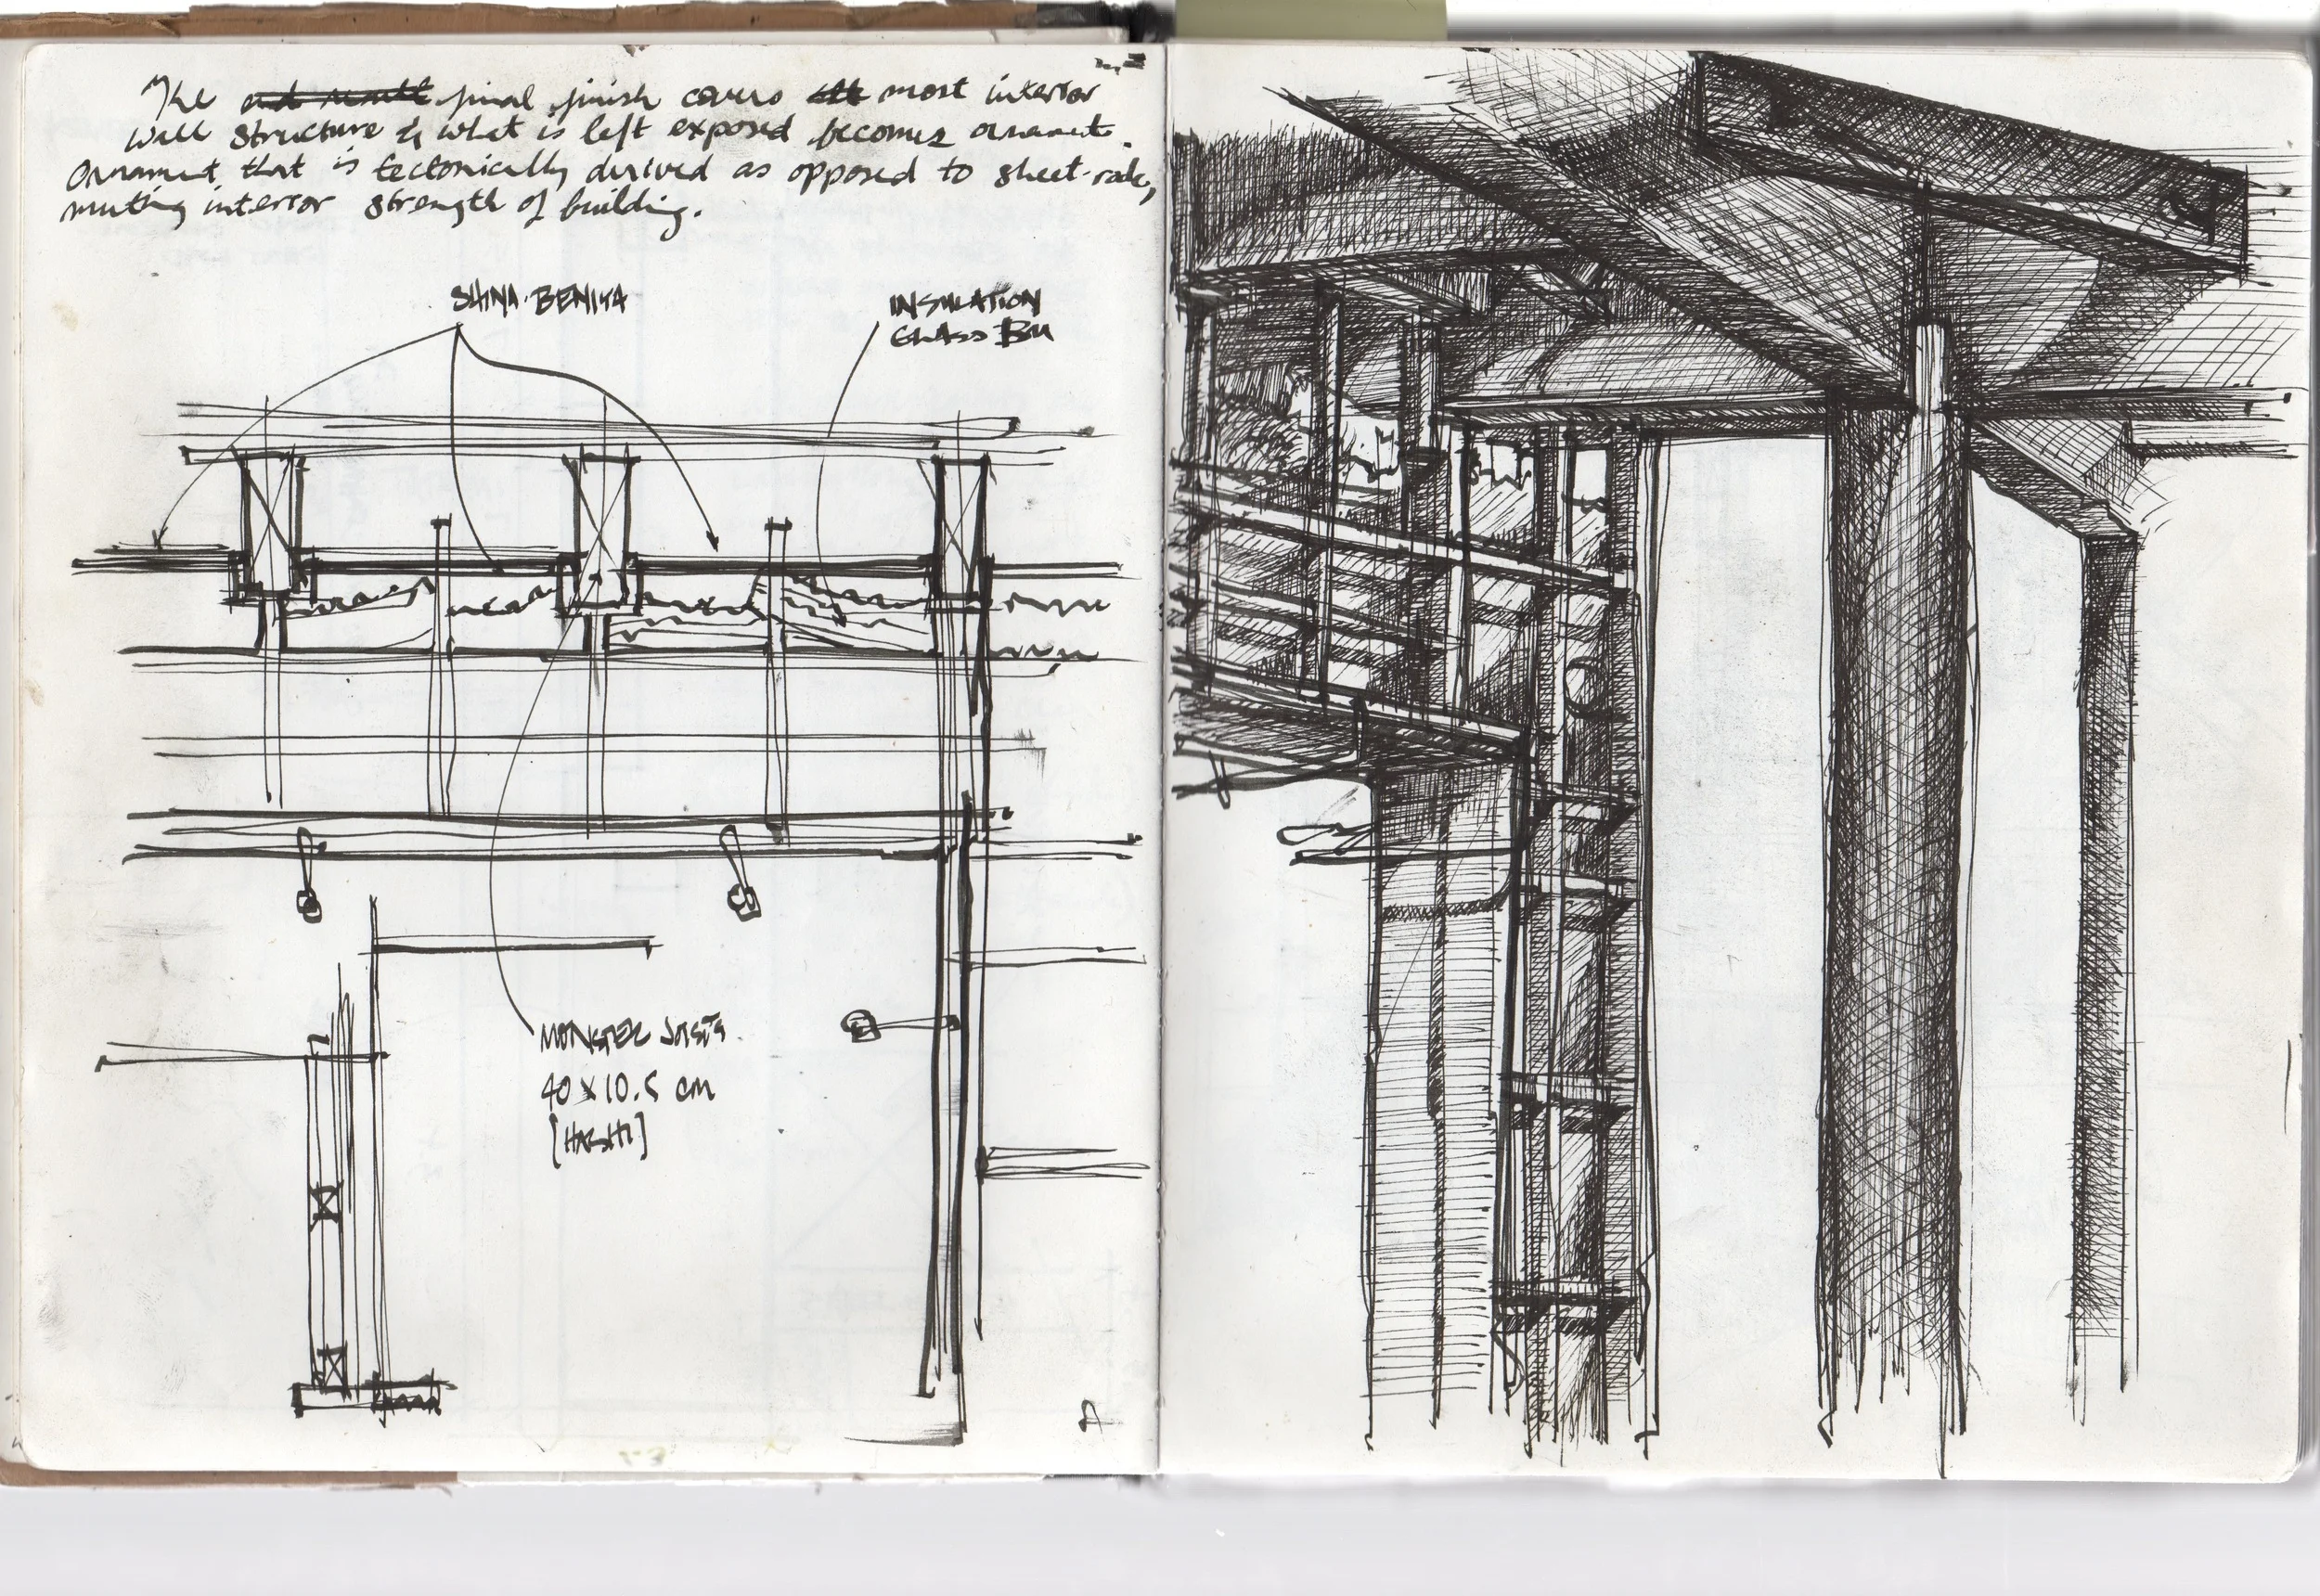 The end result final finish covers the most interior
wall structure & what is left exposed becomes ornament.
Ornament that is tectonically derived as opposed to sheet-rock,
muting interior strength of building.
SHINA-BENIYA
INSULATION
GLASS
MONSTER JOISTS
40 x 10.5 cm
[HASHI]